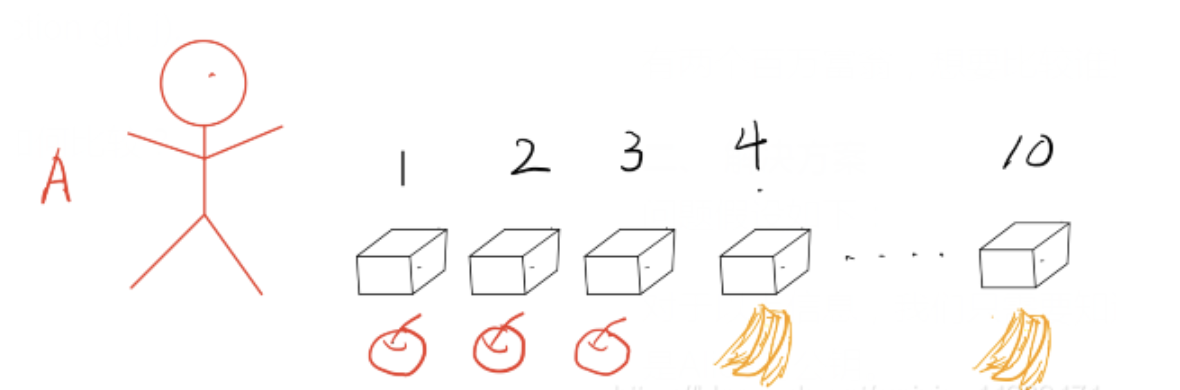 A
1 2 3 4 10